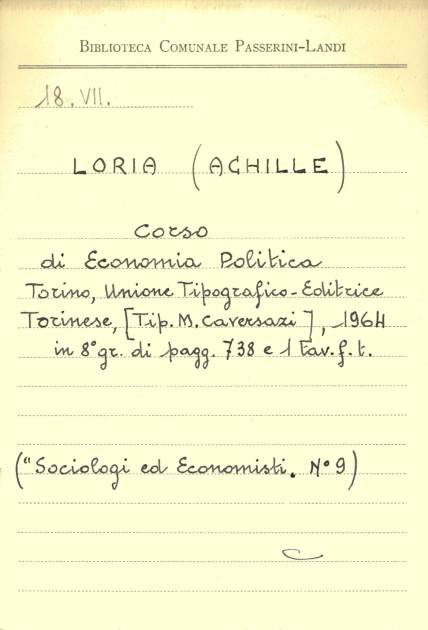 BIBLIOTECA COMUNALE PASSERINI-LANDI
18. VII.
LORIA (ACHILLE)
Corso
di Economia Politica
Torino, Unione Tipografico-Editrice
Torinese, [Tip. M. Caversazi], 1964
in 8° gr. di pagg. 738 e 1 tav. f. t.
("Sociologi ed Economisti. N° 9)